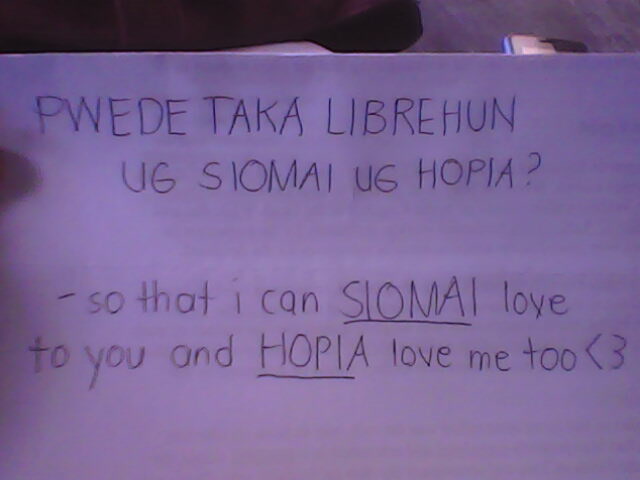 PWEDE TAKA LIBREHUN
UG SIOMAI UG HOPIA?
- so that i can SIOMAI love
to you and HOPIA love me too <3